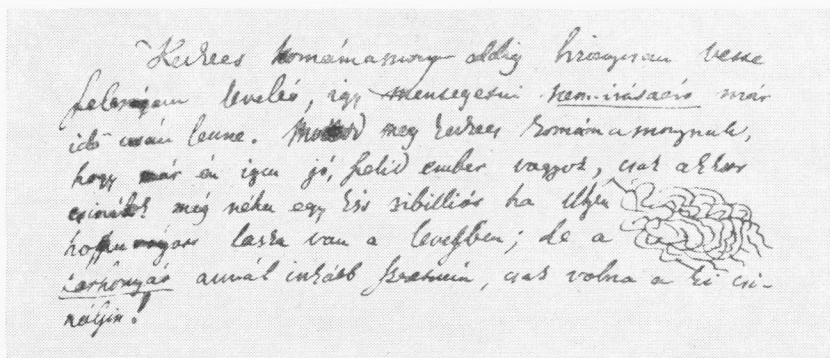 Kedves komámasszony addig bizonyosan vette
feleségem levelét, így mentegetni nem-irásáért már
idő után lenne. Mondd meg kedves komámasszonynak,
hogy már én igen jó, szelid ember vagyok, csak akkor
csinálok még néha egy kis zibilliót ha illyen
hosszu vágású laska van a levesben; de a
tarhonyát annál inkább szeretném, csak volna a ki csi-
náljon!